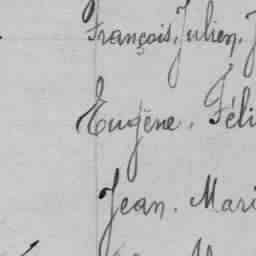 François, Julien, J
Eugène, Féli
Jean, Mari